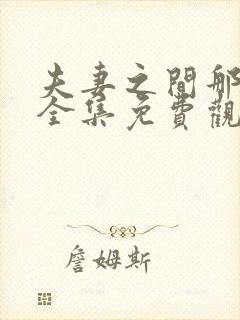 夫妻之間那
全集免費觀
詹姆斯